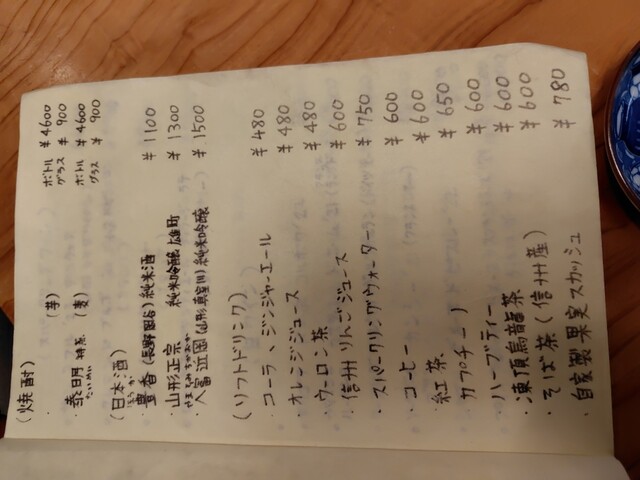 (焼酎)
・ (芋) ボトル ¥4600
グラス ¥900
・泰明 特蒸 (麦) ボトル ¥4600
たいめい グラス ¥900
(日本酒)
豊香 (長野岡谷) 純米酒 ¥1100
・山形正宗 純米吟醸 雄町 ¥1300
(山形 真室川) 純米吟醸 ¥1500
(ソフトドリンク)
・コーラ、ジンジャーエール ¥480
・オレンジジュース ¥480
・ウーロン茶 ¥480
・信州りんごジュース ¥600
・スパークリングウォーター ¥750
・コーヒー ¥600
・紅茶 ¥600
・カプチーノ ¥650
・ハーブティー ¥600
・凍頂烏龍茶 ¥600
・そば茶(信州産) ¥600
・自家製果実スカッシュ ¥780